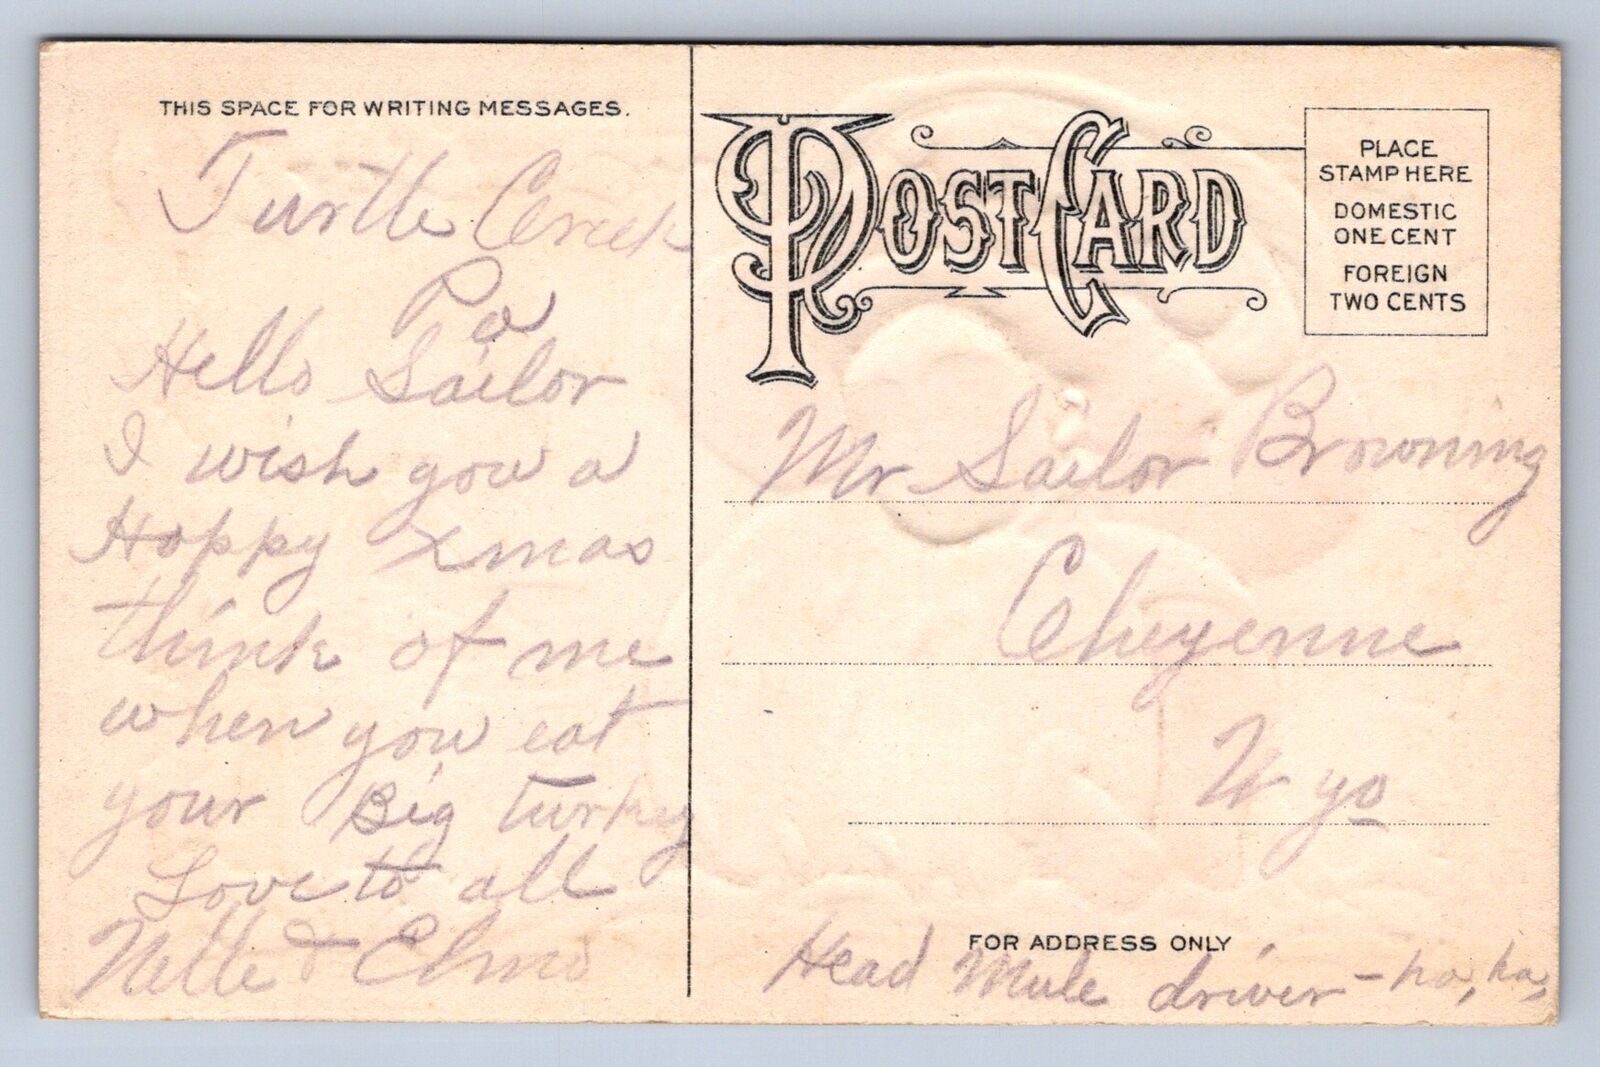 THIS SPACE FOR WRITING MESSAGES.
Turtle Creek
Pa
Hello Sailor
I wish you a
Happy Xmas
think of me
when you eat
your Big turkey
Love to all
Nelle & Elmo
POST CARD
PLACE
STAMP HERE
DOMESTIC
ONE CENT
FOREIGN
TWO CENTS
Mr Sailor Browning
Cheyenne
Wyo
FOR ADDRESS ONLY
Head Mule driver - ha, ha,